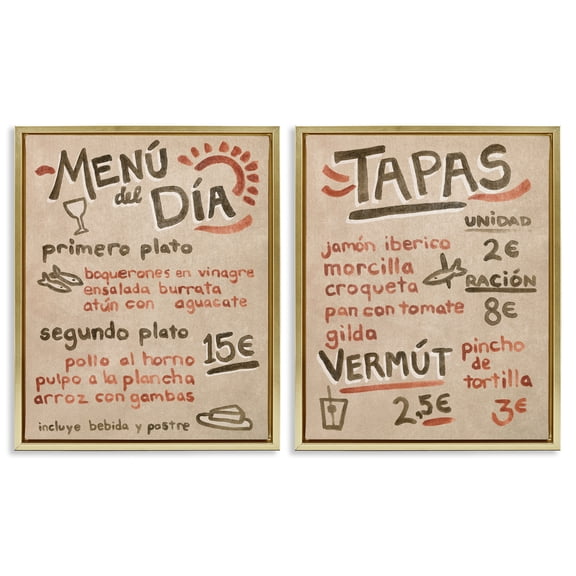 MENÚ
del DÍA
primero plato
boquerones en vinagre
ensalada burrata
atún con aguacate
segundo plato
15€
pollo al horno
pulpo a la plancha
arroz con gambas
incluye bebida y postre
TAPAS
UNIDAD
2€
RACIÓN
8€
jamón iberico
morcilla
croqueta
pan con tomate
gilda
VERMÚT
2,5€
pincho
de
tortilla
3€